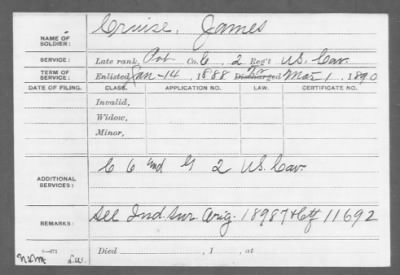 NAME OF SOLDIER: Cruise, James
SERVICE: Late rank, Pvt Co. C, 2 Reg't U.S. Cav.
TERM OF SERVICE: Enlisted Jan-14, 1888 Discharged Mar 1, 1890
DATE OF FILING. CLASS. APPLICATION NO. LAW. CERTIFICATE NO.
Invalid,
Widow,
Minor,
ADDITIONAL SERVICES: C G and G 2 U.S. Cav.
REMARKS: See Ind. Sur. Orig. 18987 & Ctf 11692
Died , 1 , at